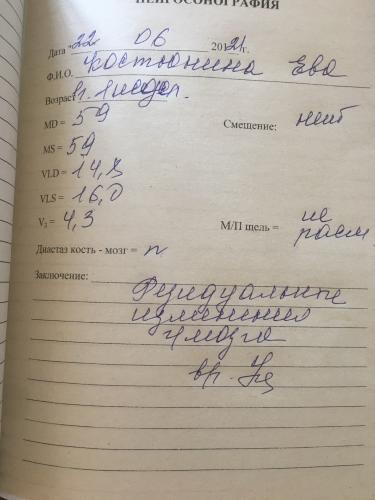 НЕЙРОСОНОГРАФИЯ
Дата 22 06 2021 г.
Ф.И.О. Костюнина Ева
Возраст
MD = 59 Смещение: нет
MS = 59
VLD = 14,8
VLS = 16,0
V3 = 4,3 М/П щель = не расш
Диастаз кость - мозг = n
Заключение:
Резидуальные
изменения
г/мозга
вр.